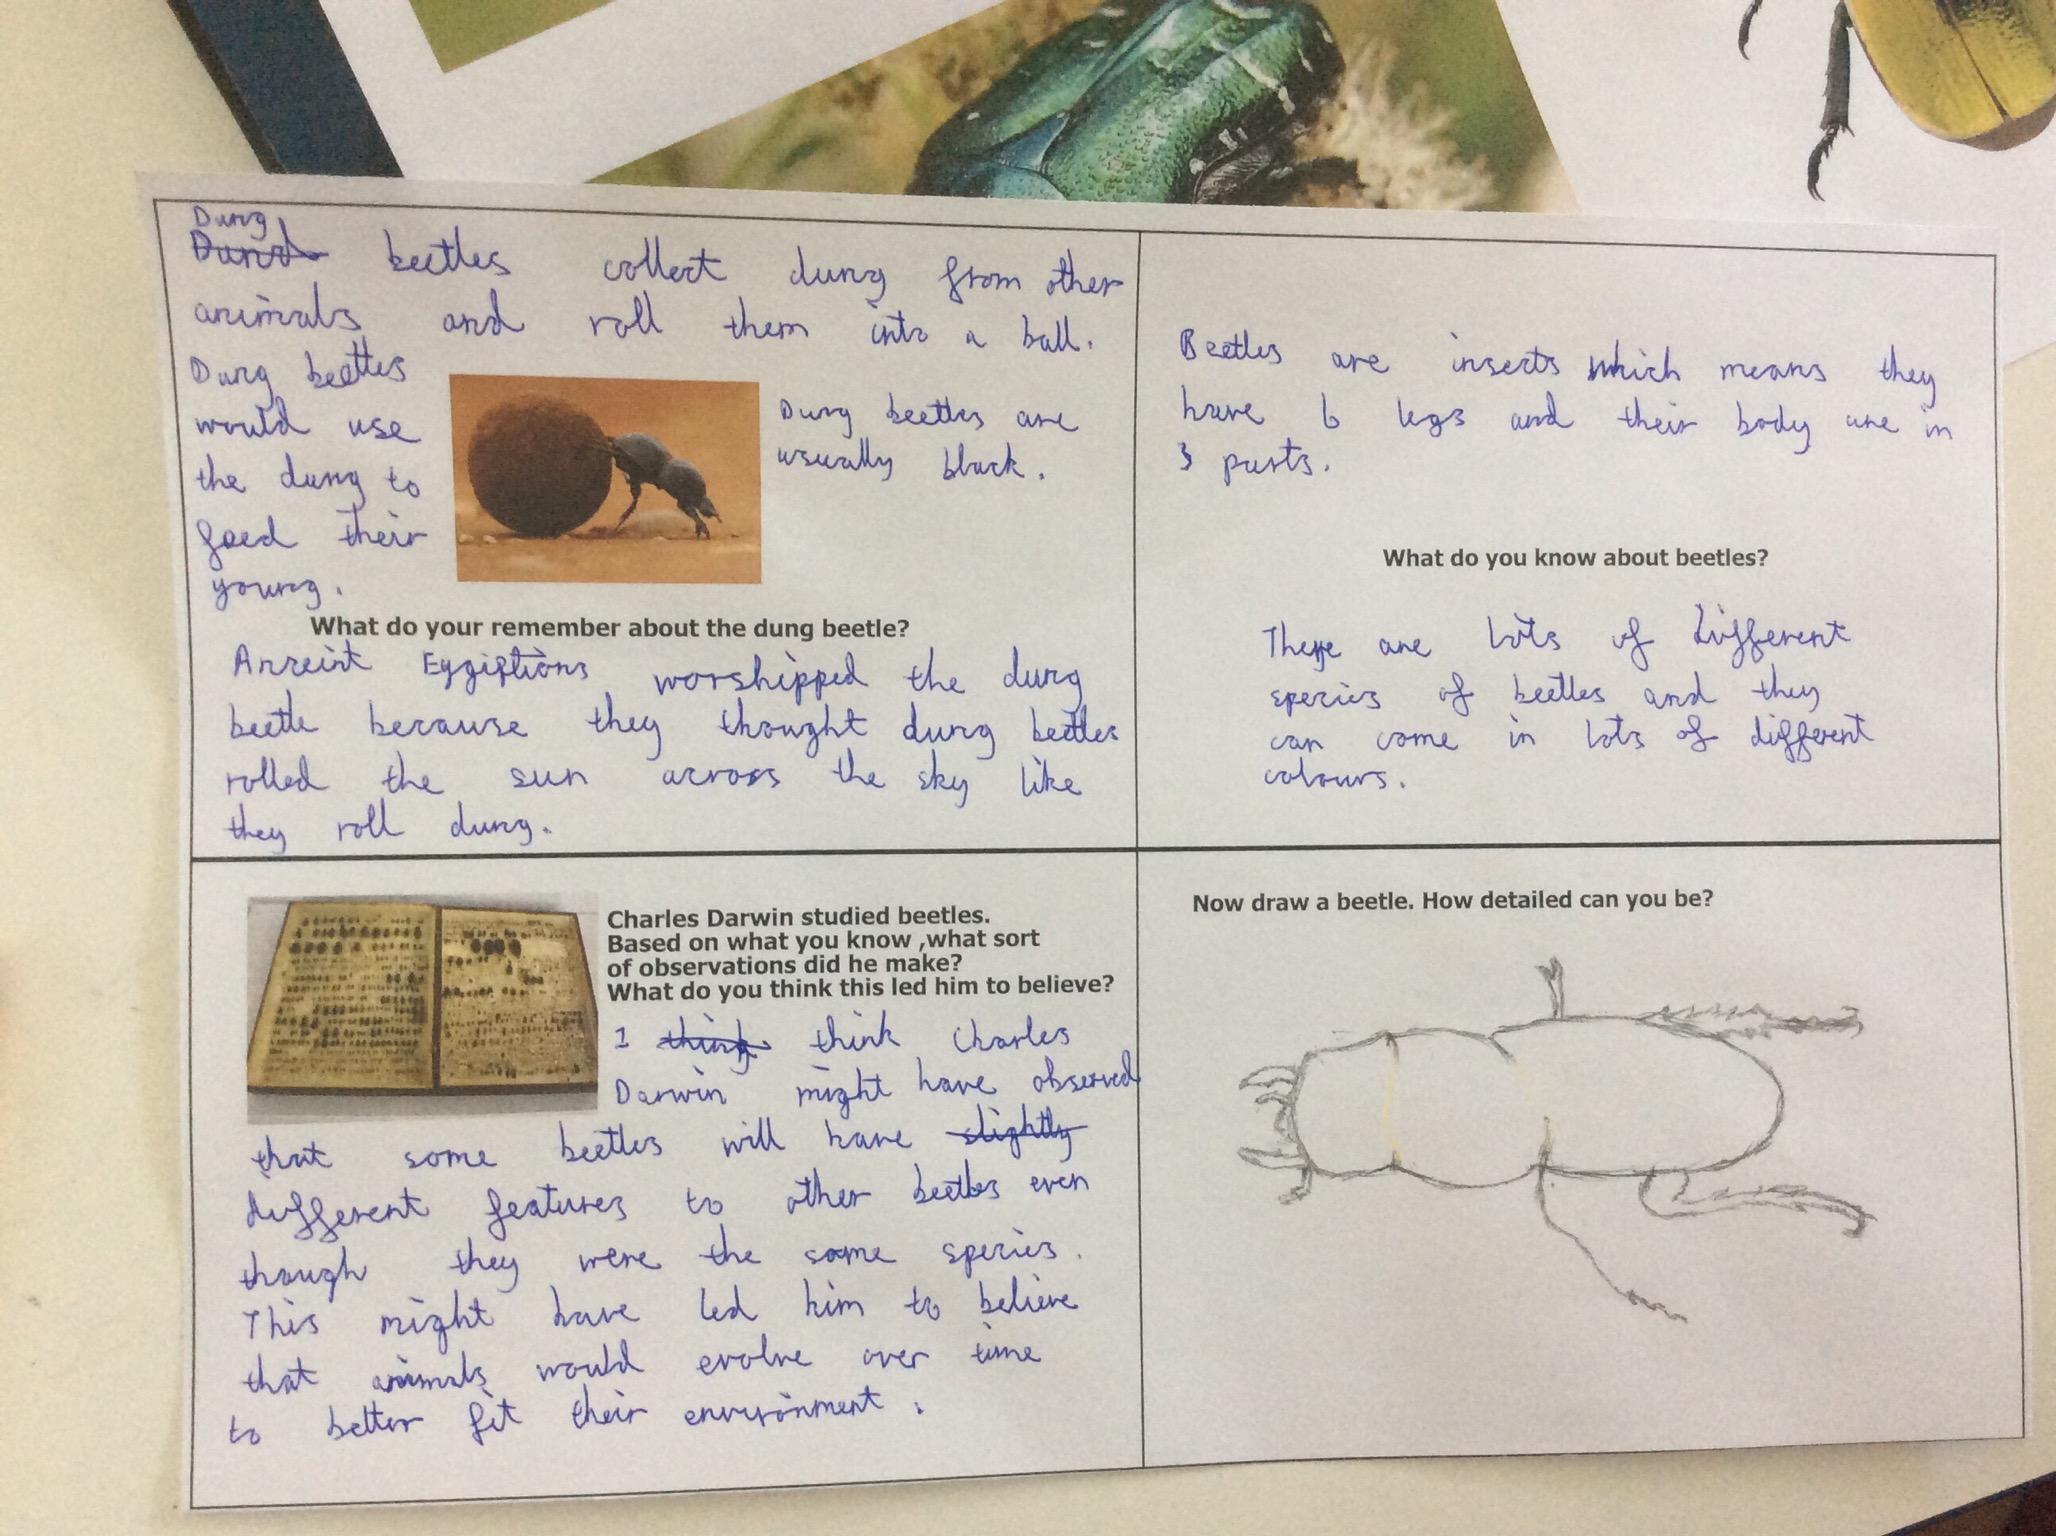 Dung
Dund beetles collect dung from other
animals and roll them into a ball.
Dung beetles
would use
the dung to
feed their
young.
Dung beetles are
usually black.
What do your remember about the dung beetle?
Anceint Eygiptions worshipped the dung
beetle because they thought dung beetles
rolled the sun across the sky like
they roll dung.
Beetles are insects which means they
have 6 legs and their body are in
3 parts.
What do you know about beetles?
There are lots of different
species of beetles and they
can come in lots of different
colours.
Charles Darwin studied beetles.
Based on what you know ,what sort
of observations did he make?
What do you think this led him to believe?
I thing think Charles
Darwin might have observed
that some beetles will have slightly
different features to other beetles even
though they were the same species.
This might have led him to believe
that animals would evolve over time
to better fit their environment.
Now draw a beetle. How detailed can you be?